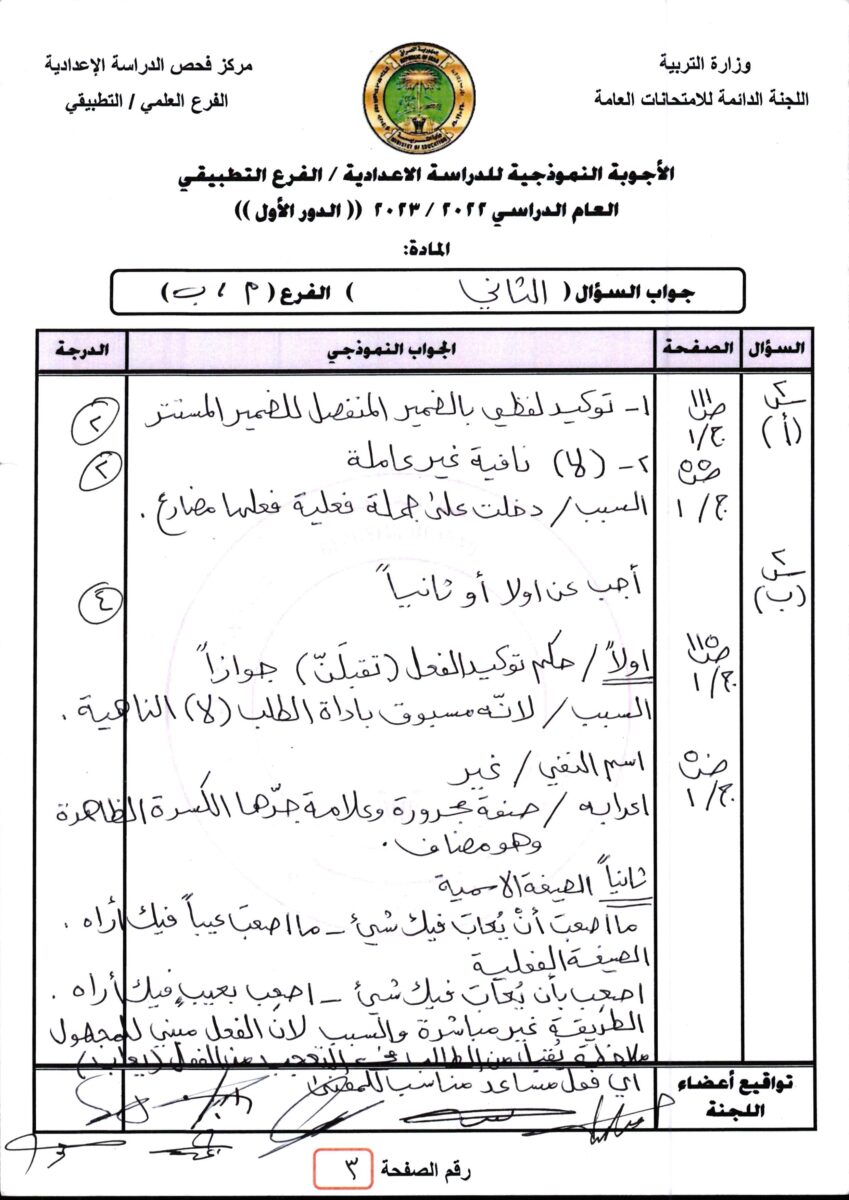 وزارة التربية
اللجنة الدائمة للامتحانات العامة
مركز فحص الدراسة الإعدادية
الفرع العلمي / التطبيقي
الأجوبة النموذجية للدراسة الاعدادية / الفرع التطبيقي
العام الدراسي ٢٠٢٢ / ٢٠٢٣ (( الدور الأول ))
المادة:
جواب السؤال ( الثاني ) الفرع ( م ، ب )
السؤال الصفحة الجواب النموذجي الدرجة
س٢ ص١١١ ١- توكيد لفظي بالضمير المنفصل للضمير المستتر ٢
(أ) ج/١
ص٥٥ ٢- (لا) نافية غير عاملة ٢
ج/١ السبب / دخلت على جملة فعلية فعلها مضارع .
س٢ (ب) أجب عن اولا أو ثانياً ٤
ص١١٥ اولاً / حكم توكيد الفعل (تقبلَنّ) جوازاً
ج/١ السبب / لانّه مسبوق باداة الطلب (لا) الناهية .
ص٥ اسم النفي / غير
ج/١ اعرابه / صفة مجرورة وعلامة جرّها الكسرة الظاهرة
وهو مضاف .
ثانياً الصيغة الاسمية
ما اصعبَ أنْ يُعابَ فيك شيءٌ - ما اصعبَ عيباً فيك أراه .
الصيغة الفعلية
اصعِب بأن يُعابَ فيك شيءٌ - اصعِب بعيبٍ فيك أراه .
الطريقة غير مباشرة والسبب لانّ الفعل مبني للمجهول
ملاحظة يُقبل من الطالب التعجب من الفعل (يعاب)
اي فعل مساعد مناسب للمعنى
تواقيع أعضاء
اللجنة
رقم الصفحة ٣